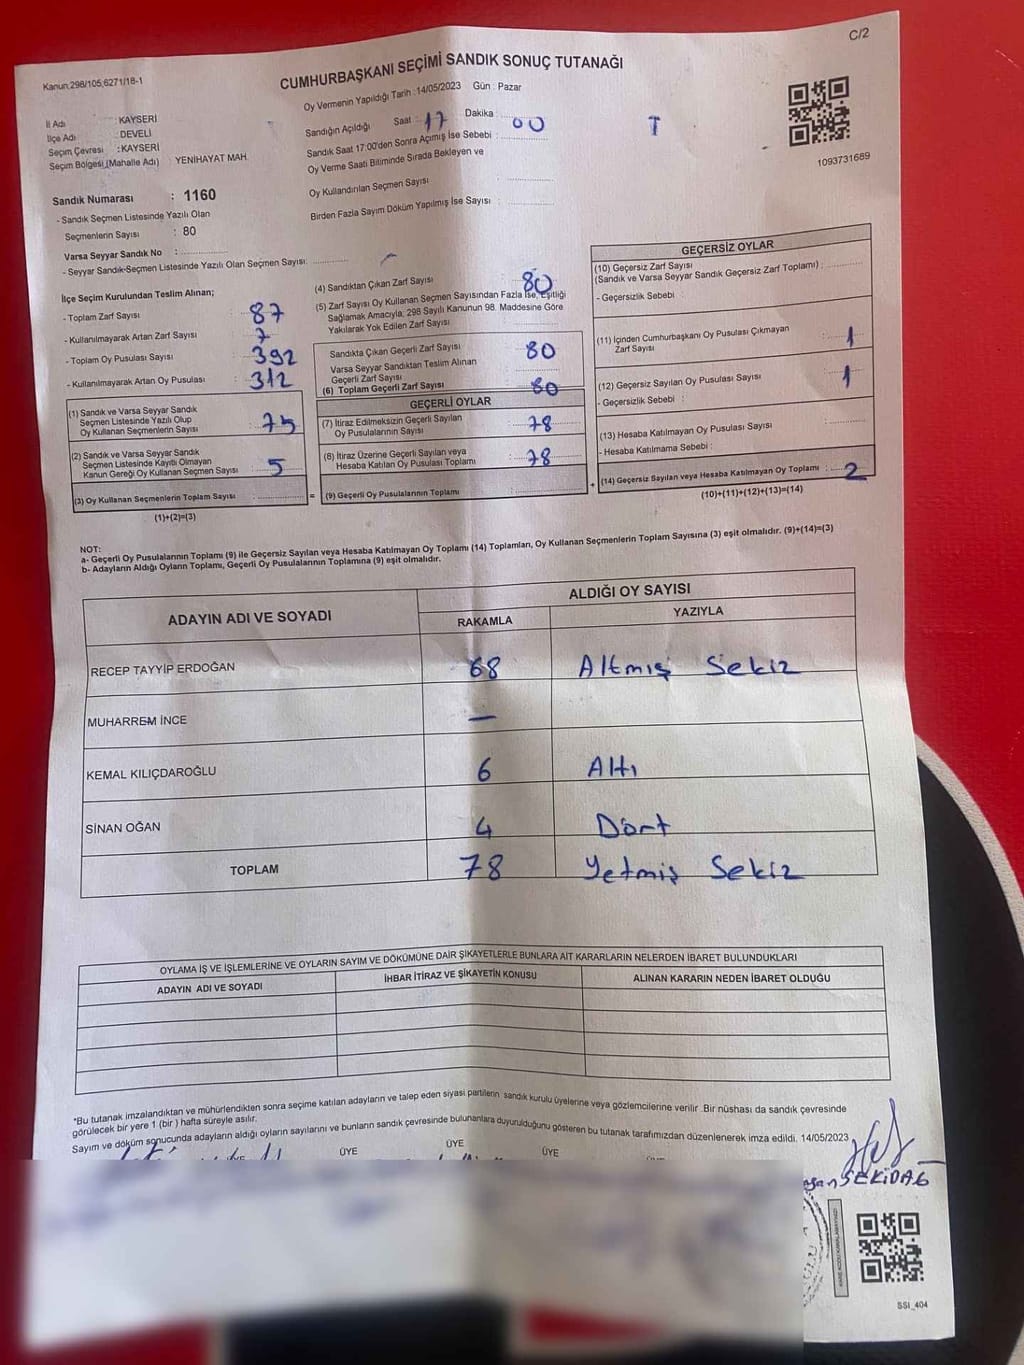 C/2
Kanun:298/105;6271/18-1
CUMHURBAŞKANI SEÇİMİ SANDIK SONUÇ TUTANAĞI
Oy Vermenin Yapıldığı Tarih :14/05/2023 Gün : Pazar
İl Adı : KAYSERİ
İlçe Adı : DEVELİ
Seçim Çevresi : KAYSERİ
Seçim Bölgesi (Mahalle Adı) YENİHAYAT MAH.
Sandığın Açıldığı Saat : 17 Dakika : 00
T
Sandık Saat 17:00'den Sonra Açılmış İse Sebebi :
Oy Verme Saati Bitiminde Sırada Bekleyen ve
Oy Kullandırılan Seçmen Sayısı :
Birden Fazla Sayım Döküm Yapılmış İse Sayısı :
1093731689
Sandık Numarası : 1160
- Sandık Seçmen Listesinde Yazılı Olan
Seçmenlerin Sayısı : 80
Varsa Seyyar Sandık No :
- Seyyar Sandık-Seçmen Listesinde Yazılı Olan Seçmen Sayısı:
İlçe Seçim Kurulundan Teslim Alınan;
- Toplam Zarf Sayısı : 87
- Kullanılmayarak Artan Zarf Sayısı : 7
- Toplam Oy Pusulası Sayısı : 392
- Kullanılmayarak Artan Oy Pusulası : 312
(1) Sandık ve Varsa Seyyar Sandık
Seçmen Listesinde Yazılı Olup
Oy Kullanan Seçmenlerin Sayısı : 75
(2) Sandık ve Varsa Seyyar Sandık
Seçmen Listesinde Kayıtlı Olmayan
Kanun Gereği Oy Kullanan Seçmen Sayısı : 5
(3) Oy Kullanan Seçmenlerin Toplam Sayısı :
(1)+(2)=(3)
(4) Sandıktan Çıkan Zarf Sayısı : 80
(5) Zarf Sayısı Oy Kullanan Seçmen Sayısından Fazla İse, Eşitliği
Sağlamak Amacıyla; 298 Sayılı Kanunun 98. Maddesine Göre
Yakılarak Yok Edilen Zarf Sayısı :
Sandıkta Çıkan Geçerli Zarf Sayısı : 80
Varsa Seyyar Sandıktan Teslim Alınan
Geçerli Zarf Sayısı :
(6) Toplam Geçerli Zarf Sayısı : 80
GEÇERLİ OYLAR
(7) İtiraz Edilmeksizin Geçerli Sayılan
Oy Pusulalarının Sayısı : 78
(8) İtiraz Üzerine Geçerli Sayılan veya
Hesaba Katılan Oy Pusulası Toplamı : 78
= (9) Geçerli Oy Pusulalarının Toplamı :
GEÇERSİZ OYLAR
(10) Geçersiz Zarf Sayısı
(Sandık ve Varsa Seyyar Sandık Geçersiz Zarf Toplamı) :
- Geçersizlik Sebebi :
(11) İçinden Cumhurbaşkanı Oy Pusulası Çıkmayan
Zarf Sayısı : 1
(12) Geçersiz Sayılan Oy Pusulası Sayısı : 1
- Geçersizlik Sebebi :
(13) Hesaba Katılmayan Oy Pusulası Sayısı :
- Hesaba Katılmama Sebebi :
+ (14) Geçersiz Sayılan veya Hesaba Katılmayan Oy Toplamı : 2
(10)+(11)+(12)+(13)=(14)
NOT:
a- Geçerli Oy Pusulalarının Toplamı (9) ile Geçersiz Sayılan veya Hesaba Katılmayan Oy Toplamı (14) Toplamları, Oy Kullanan Seçmenlerin Toplam Sayısına (3) eşit olmalıdır. (9)+(14)=(3)
b- Adayların Aldığı Oyların Toplamı, Geçerli Oy Pusulalarının Toplamına (9) eşit olmalıdır.
ADAYIN ADI VE SOYADI
ALDIĞI OY SAYISI
RAKAMLA YAZIYLA
RECEP TAYYİP ERDOĞAN 68 Altmış Sekiz
MUHARREM İNCE —
KEMAL KILIÇDAROĞLU 6 Altı
SİNAN OĞAN 4 Dört
TOPLAM 78 Yetmiş Sekiz
OYLAMA İŞ VE İŞLEMLERİNE VE OYLARIN SAYIM VE DÖKÜMÜNE DAİR ŞİKAYETLERLE BUNLARA AİT KARARLARIN NELERDEN İBARET BULUNDUKLARI
ADAYIN ADI VE SOYADI İHBAR İTİRAZ VE ŞİKAYETİN KONUSU ALINAN KARARIN NEDEN İBARET OLDUĞU
*Bu tutanak imzalandıktan ve mühürlendikten sonra seçime katılan adayların ve talep eden siyasi partilerin sandık kurulu üyelerine veya gözlemcilerine verilir .Bir nüshası da sandık çevresinde
görülecek bir yere 1 (bir ) hafta süreyle asılır.
Sayım ve döküm sonucunda adayların aldığı oyların sayılarını ve bunların sandık çevresinde bulunanlara duyurulduğunu gösteren bu tutanak tarafımızdan düzenlenerek imza edildi. 14/05/2023
ÜYE ÜYE ÜYE
SSI_404